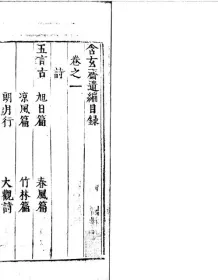 含玄齋遺編目錄
卷之一
詩
五言古
旭日篇
春風篇
凉風篇
竹林篇
朗月行
大觀詩